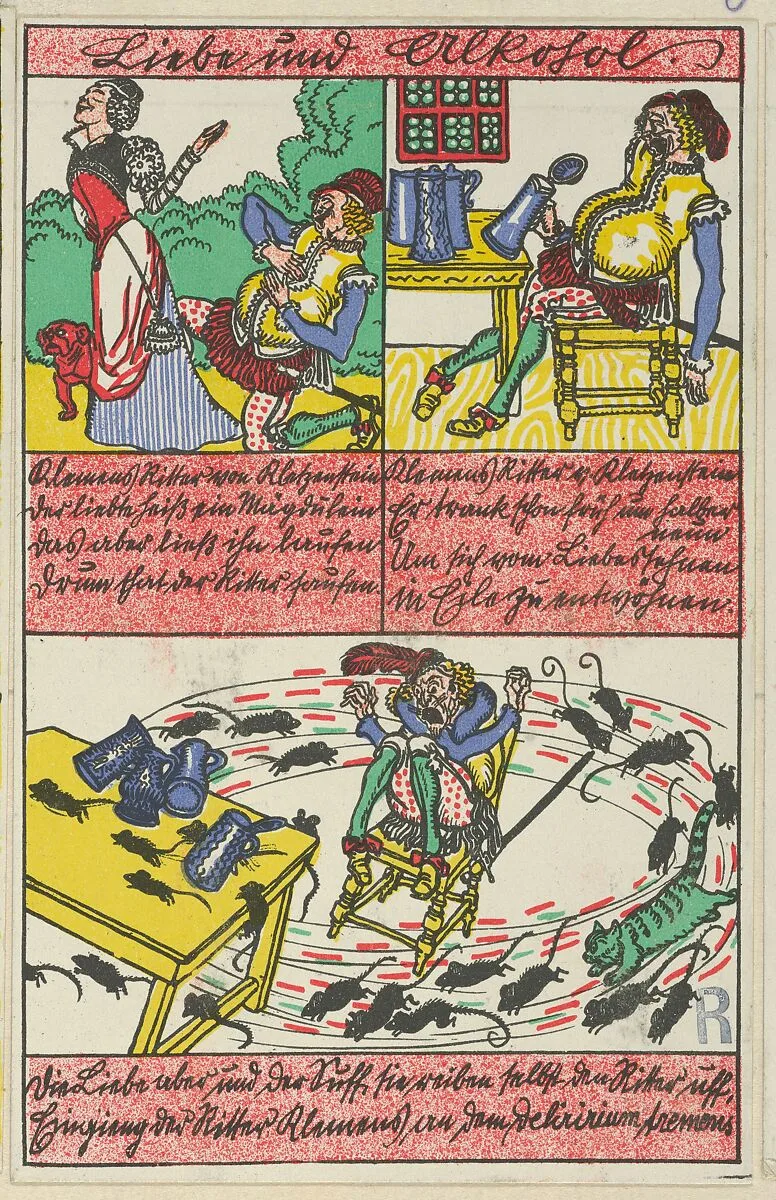 Liebe und Alkohol.
Klemens Ritter von Kletzenstein
Der liebte heiß ein Mägdulein
Das aber ließ ihn laufen
Drum that der Ritter saufen.
Klemens Ritter v. Kletzenstein
Er trank schon früh um halber
neun
Um sich vom Liebessehnen
in Eile zu entwöhnen.
Die Liebe aber und der Suff, sie reiben selbst den Ritter uff,
Einging der Ritter Klemens an dem deliririum tremens
R